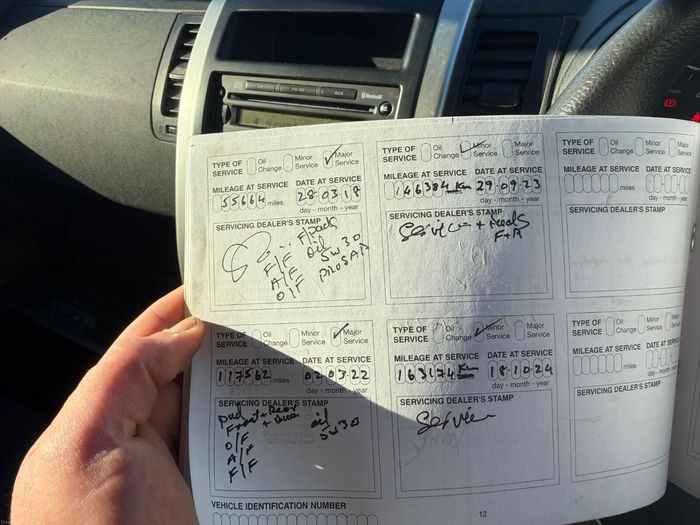 CD FM·AM AUX Bluetooth
TYPE OF SERVICE Oil Change Minor Service ✓ Major Service
MILEAGE AT SERVICE DATE AT SERVICE
55664 miles 28-03-18
day - month - year
SERVICING DEALER'S STAMP
F/F oil
A/F 5w30
O/F
TYPE OF SERVICE Oil Change Minor Service Major Service
MILEAGE AT SERVICE DATE AT SERVICE
146384 Km 29-09-23
day - month - year
SERVICING DEALER'S STAMP
Service + Pads
F+R
TYPE OF SERVICE Oil Change Minor Service Major
MILEAGE AT SERVICE DATE AT
miles day - mon
SERVICING DEALER'S STAMP
TYPE OF SERVICE Oil Change Minor Service ✓ Major Service
MILEAGE AT SERVICE DATE AT SERVICE
117562 miles 02-03-22
day - month - year
SERVICING DEALER'S STAMP
Front + Rear
O/F oil
A/F 5w30
F/F
TYPE OF SERVICE Oil Change ✓ Minor Service Major Service
MILEAGE AT SERVICE DATE AT SERVICE
163174 Km 18-10-24
day - month - year
SERVICING DEALER'S STAMP
Service
TYPE OF SERVICE Oil Change Minor Service
MILEAGE AT SERVICE DATE AT
miles day - mo
SERVICING DEALER'S STAMP
VEHICLE IDENTIFICATION NUMBER
12